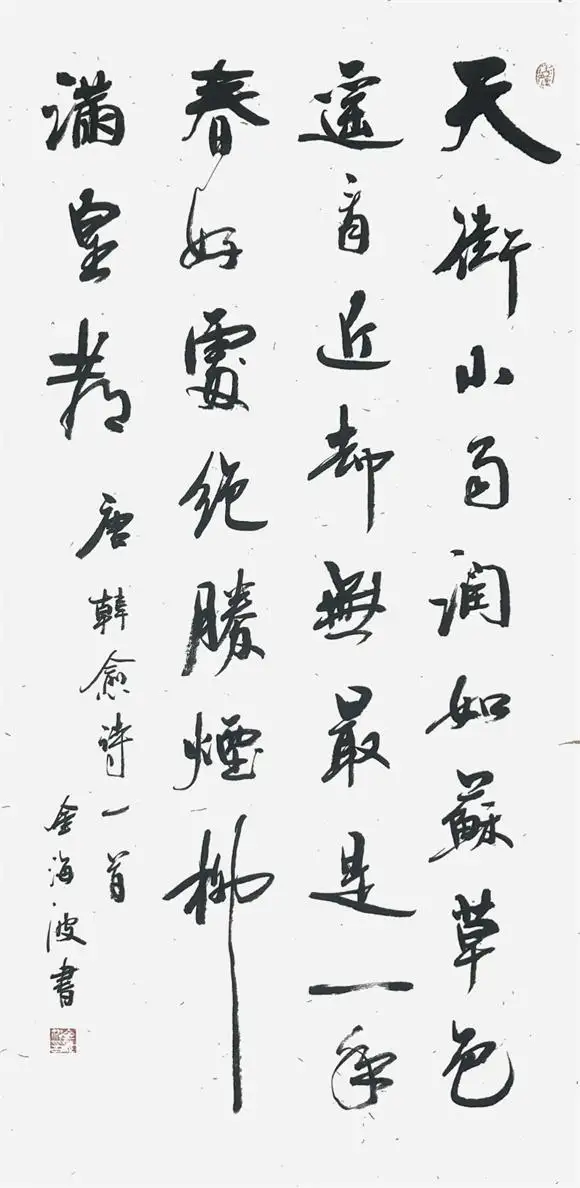 天街小雨润如蘇草色
遥看近却無最是一年
春好處绝勝煙柳
滿皇都 唐韓愈詩一首
金海波書